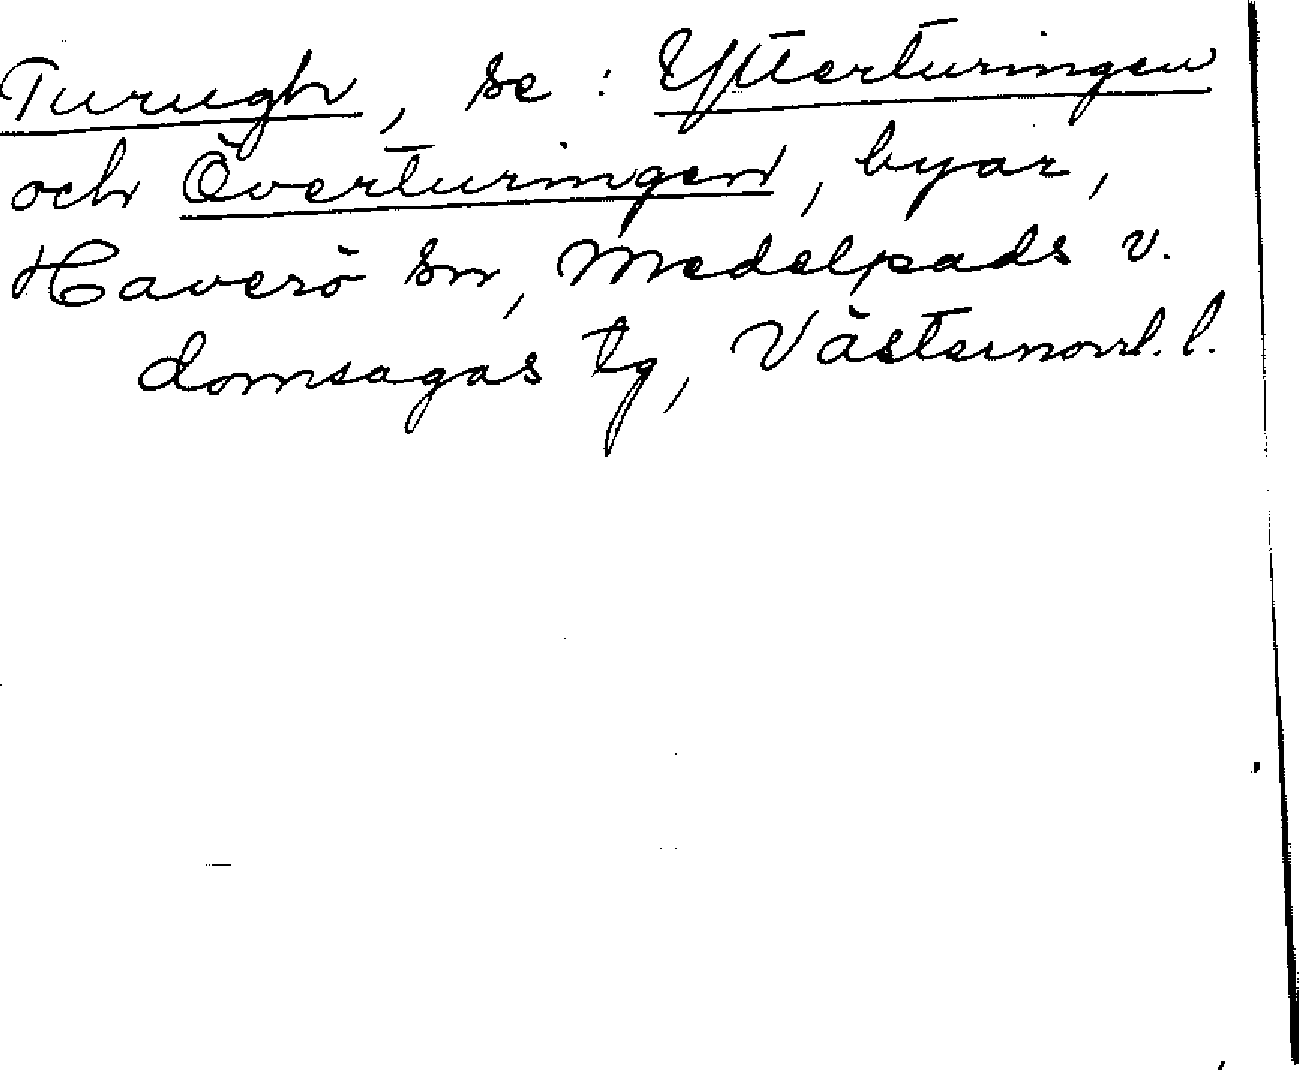 Turugh, se: Ytterturingen
och Överturingen, byar,
Haverö sn, Medelpads v.
domsagas tg, Västernorrl. l.